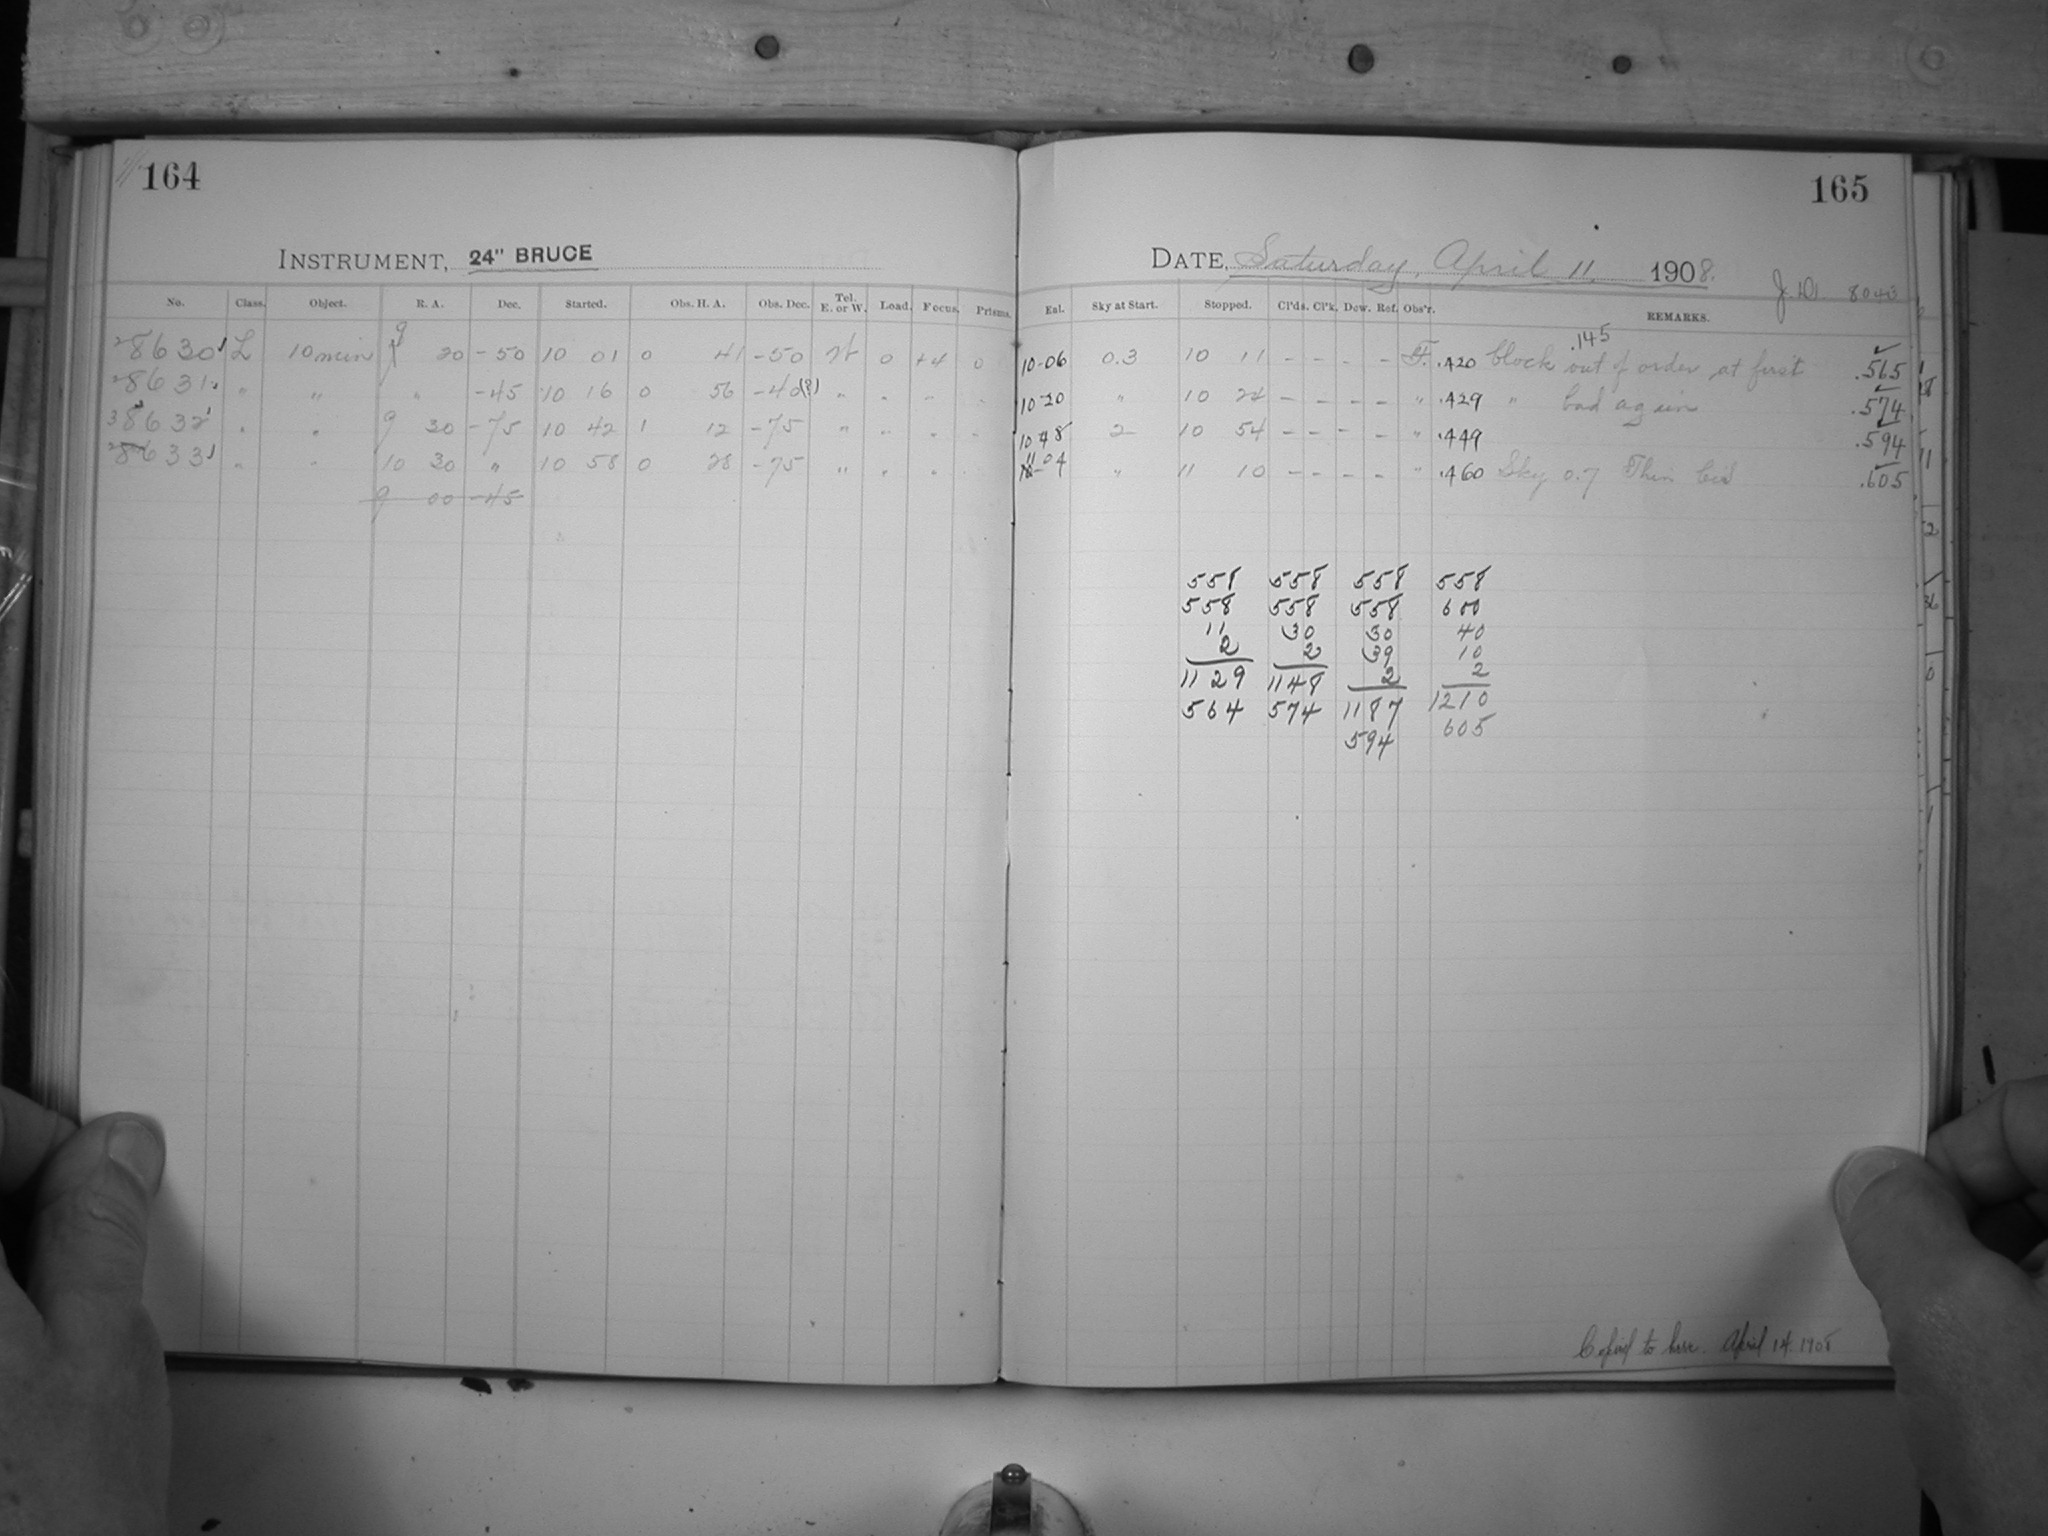 164
INSTRUMENT, 24" BRUCE
No. Class. Object. R. A. Dec. Started. Obs. H. A. Obs. Dec. Tel. E. or W. Load. Focus. Prisms.
8630 L 10 min 9 20 -50 10 01 0 41 -50 W 0 +4 0
8631 " " " -45 10 16 0 56 -40(?) " " " "
8632 " " 9 30 -75 10 42 1 12 -75 " " " "
8633 " " 10 30 " 10 58 0 28 -75 " " " "
9 00 -45
165
DATE, Saturday, April 11 1908.
J. D.
Exl. Sky at Start. Stopped. Cl'ds. Cl'k. Dew. Ref. Obs'r. REMARKS.
.145
10-06 0.3 10 11 - - - - F. .420 Clock out of order at first .565
10-20 " 10 24 - - - - " .429 " bad again .574
10 48 2 10 54 - - - - " .449 .594
11-04 " 11 10 - - - - " .460 Sky 0.7 Thin .605
558 558 558 558
558 558 558 600
11 30 30 40
2 2 39 10
1129 1148 2 2
564 574 1187 1210
594 605
Copied to here. April 14. 1908